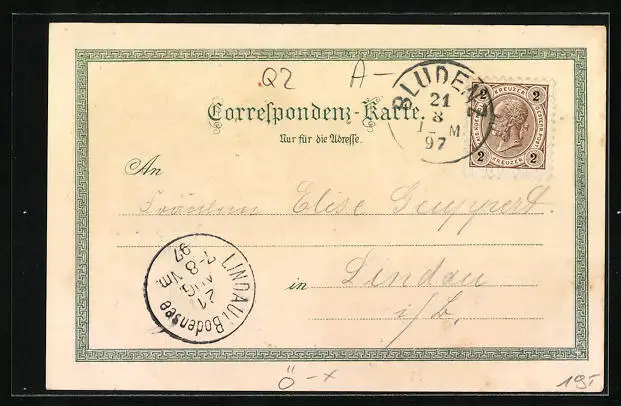 Q2 A-
Correspondenz-Karte.
Nur für die Adresse.
BLUDENZ
21
8
97
2 KREUZER 2
2 KREUZER 2
An
Fräulein Elise
in Lindau
i/B.
LINDAU i Bodensee
21
AUG
7-8 Nm
97
Ö -x
195